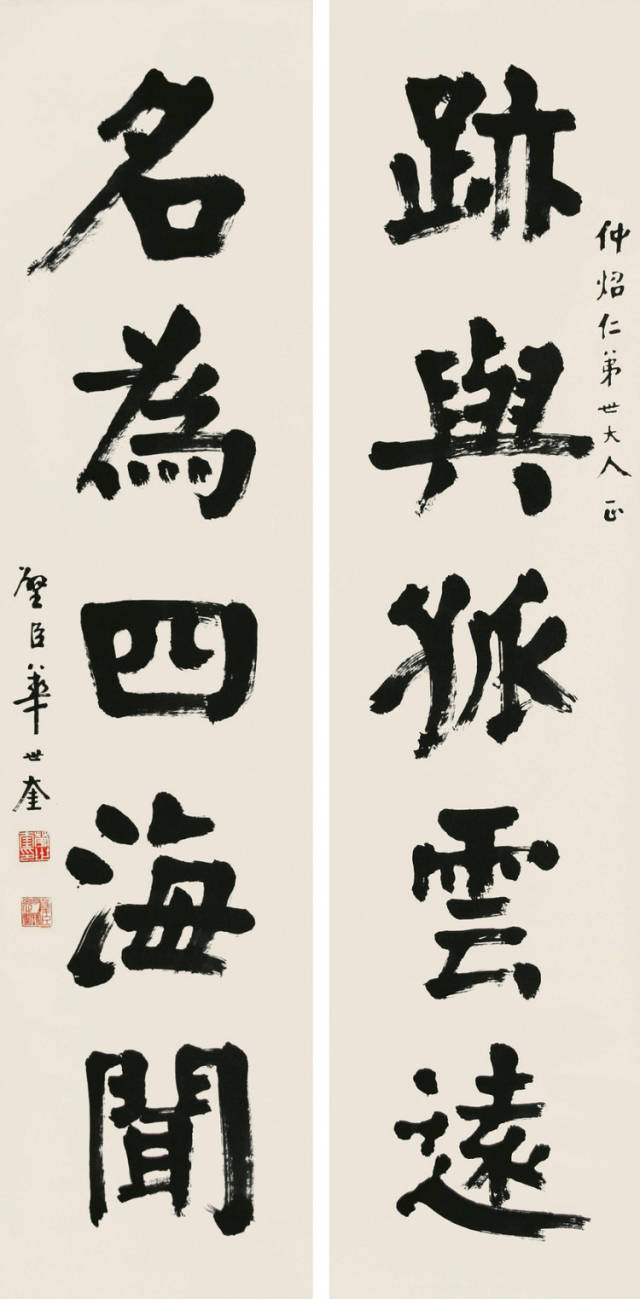 仲炤仁弟世大人正
跡與孤雲遠
名為四海聞
壁臣華世奎